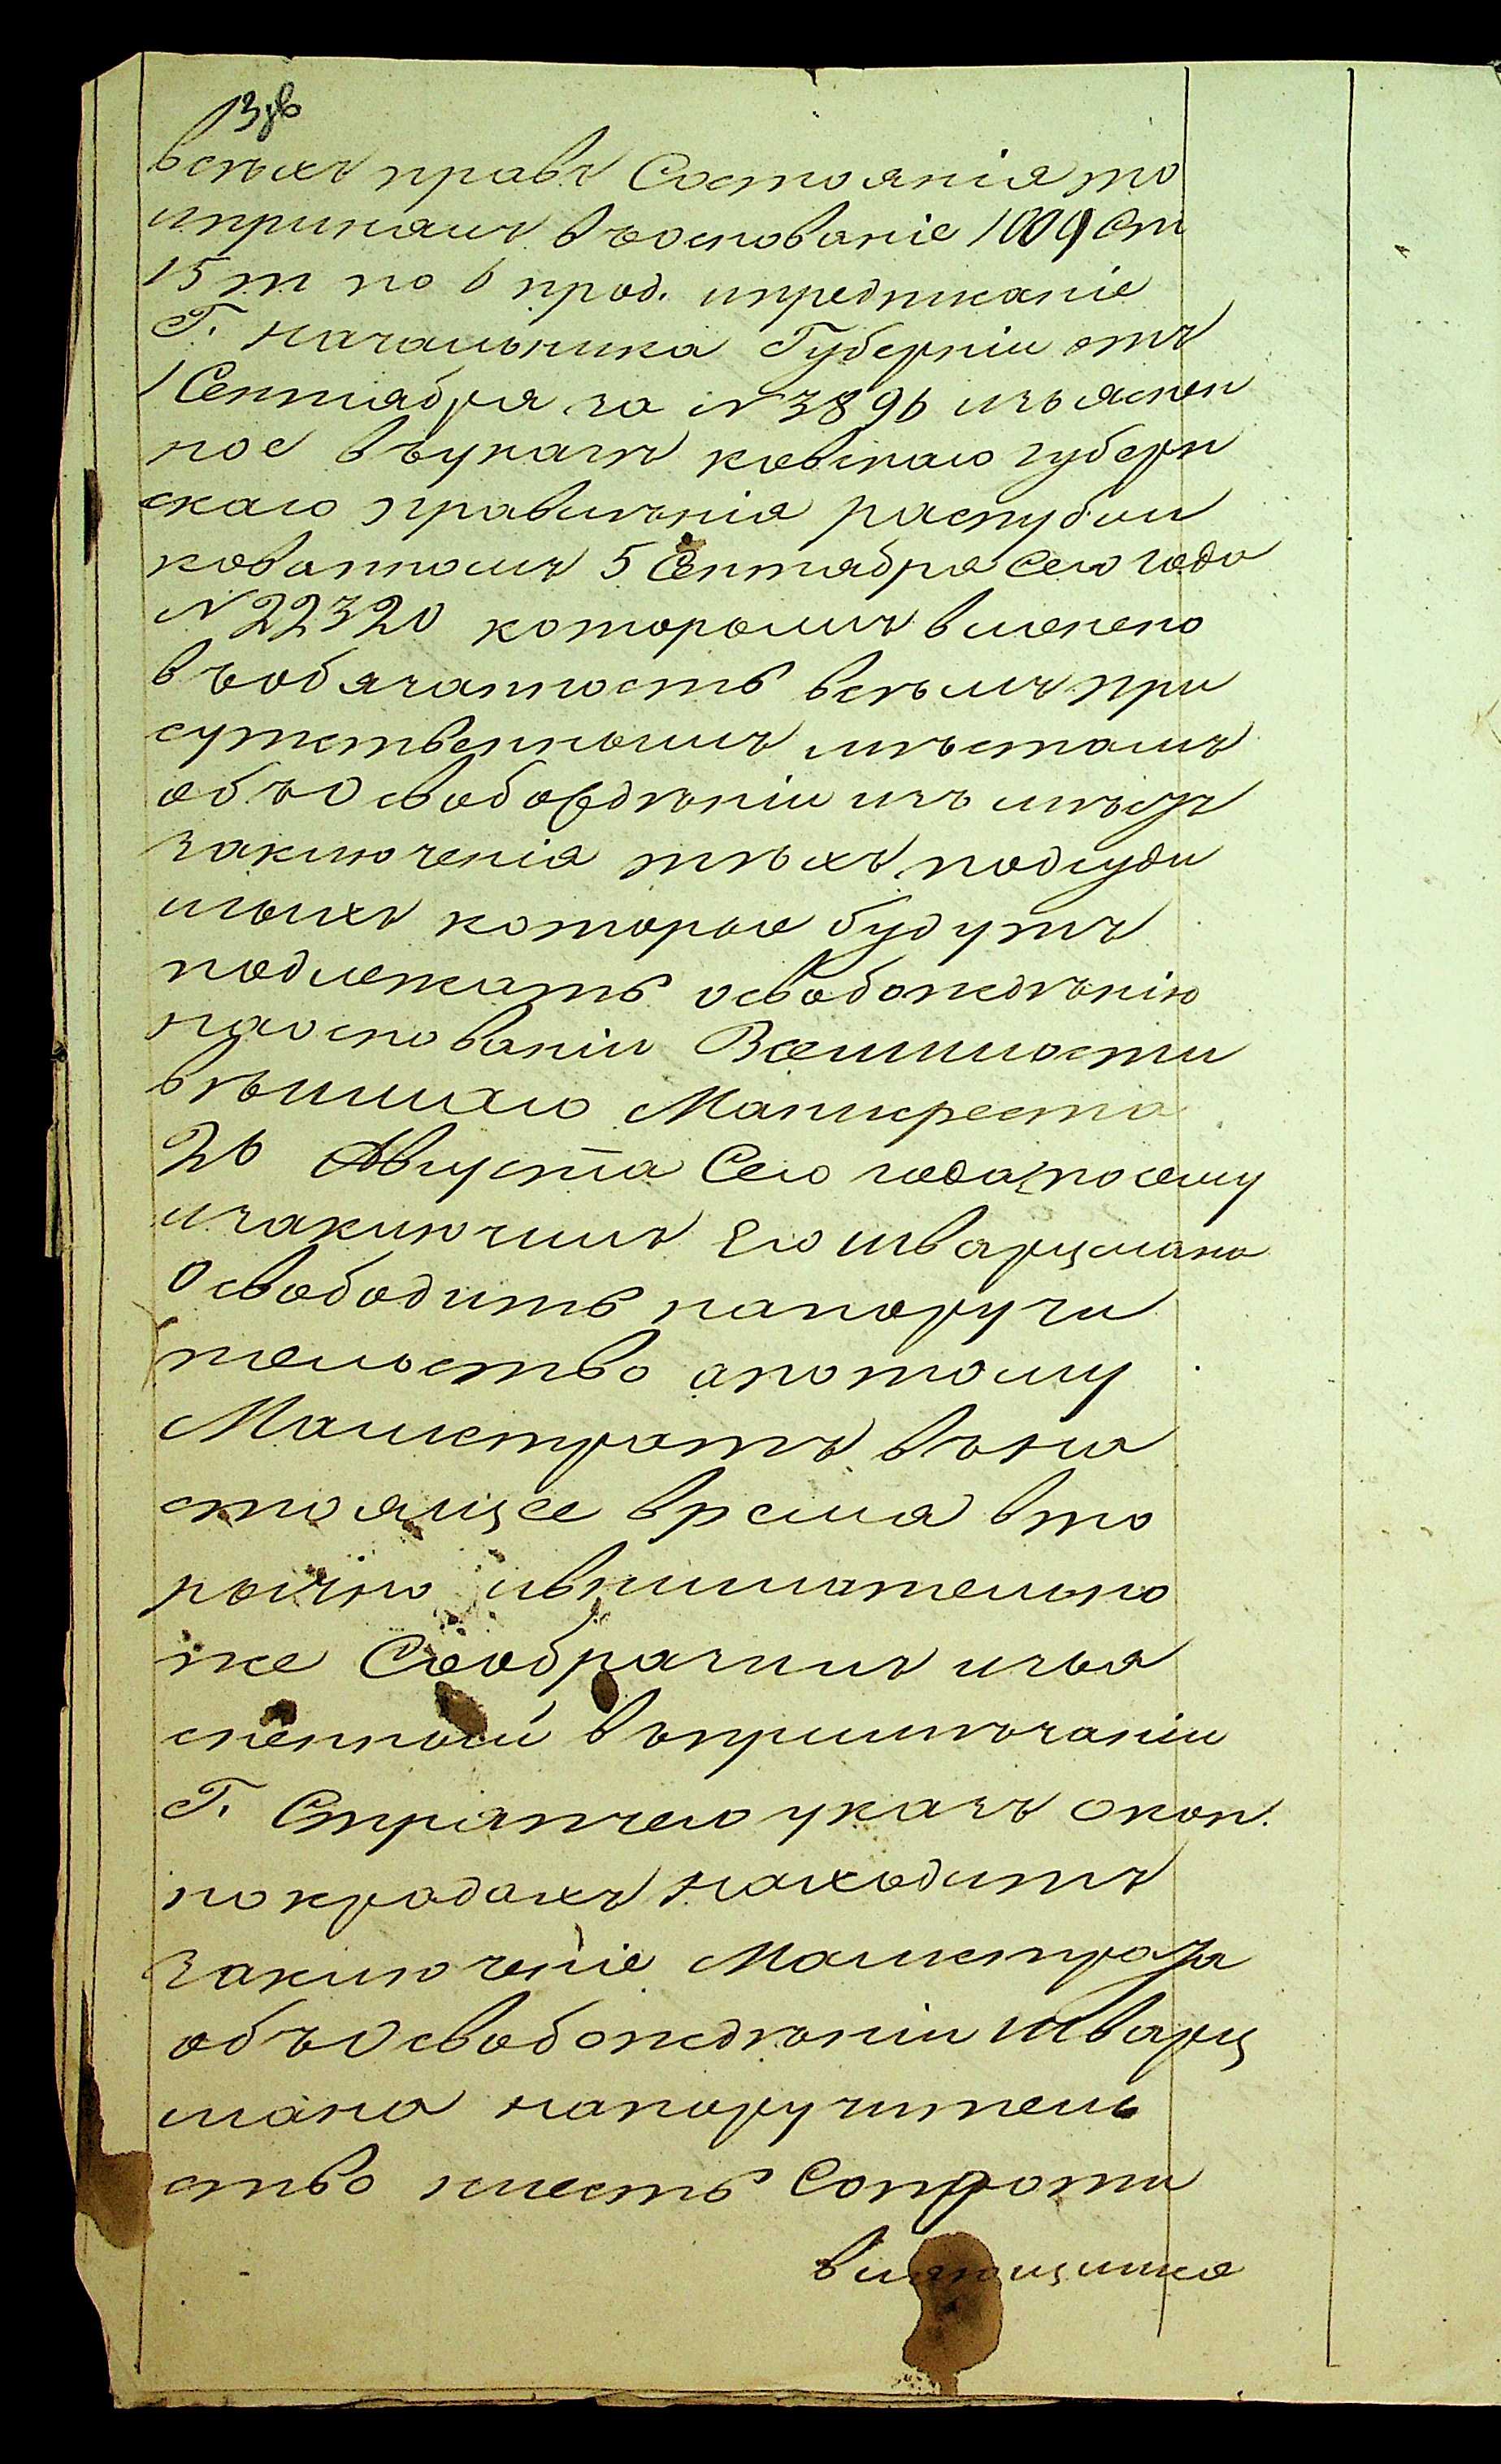 всѣхъ правъ Состоянія то
ипринявъ въоснованіе 1009 ст
15 т по 6 прод. ипредписаніе
Г. Начальника Губерніи отъ
1 Сентября за N 3896 изъяснен
ное въуказѣ кіевскаго губерн
скаго правленія распубли
кованномъ 5 Сентября Сего года
N 22320 которымъ вменено
въобязанность всѣмъ при
сутственнымъ мѣстамъ
объ Освобождѣніи изъ мѣстъ
заключенія тѣхъ подсуди
мыхъ которые будутъ
подлежать освобождѣнію
наоснованіи Всемилости
вѣйшаго Манифеста
26 Августа Сего года, посему
изаключилъ Его шварцмана
Освободить напоручи
тельство апотому
Магистратъ въна
стоящее время вто
рично ивнимательно
же Сообразивъ изъя
сненный въпримѣчаніи
Г. Стряпчего указъ о кон.
покрадахъ находитъ
заключеніе Магистрата
объ Освобождѣніи шварц
мана напоручитель
ство неесть Сопроти
вляющимся